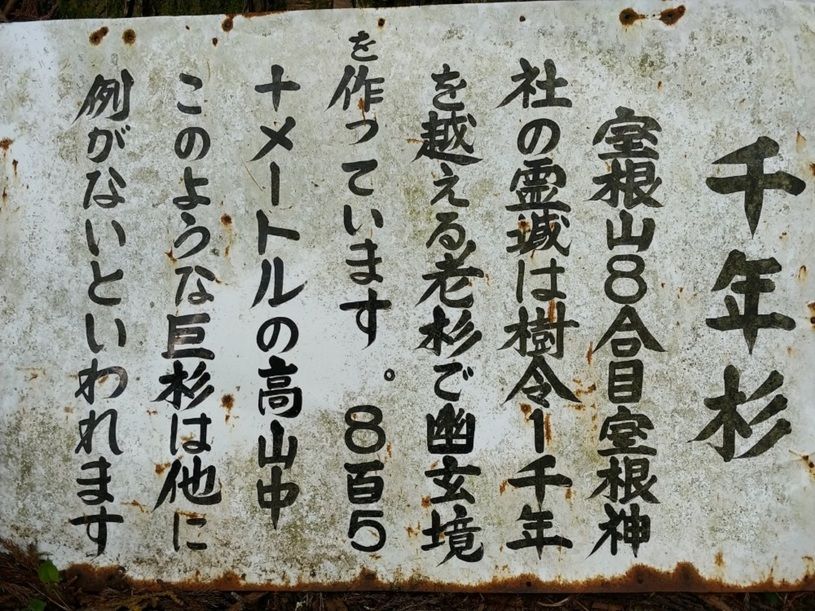 千年杉
室根山8合目室根神
社の霊域は樹令1千年
を越える老杉で幽玄境
を作っています。8百5
十メートルの高山中
このような巨杉は他に
例がないといわれます